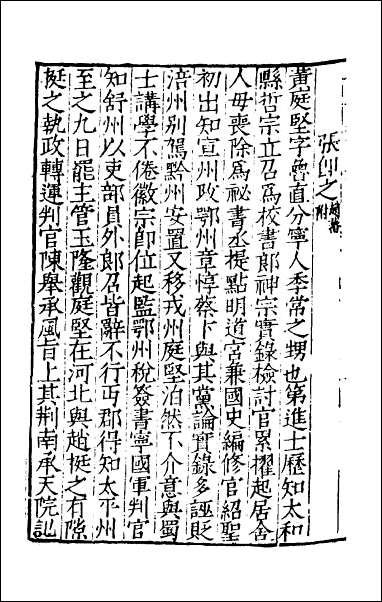 張即之趙蕃附
黃庭堅字魯直分寧人李常之甥也第進士歷知太和
縣哲宗立召爲校書郎神宗實錄檢討官累擢起居舍
人母喪除爲祕書丞提點明道宮兼國史編修官紹聖
初出知宣州改鄂州章惇蔡卞與其黨論實錄多誣貶
涪州别駕黔州安置又移戎州庭堅泊然不介意與蜀
士講學不倦徽宗卽位起監鄂州稅簽書寧國軍判官
知舒州以吏部員外郎召皆辭不行丐郡得知太平州
至之九日罷主管玉隆觀庭堅在河北與趙挺之有隙
挺之執政轉運判官陳舉承風旨上其荆南承天院記